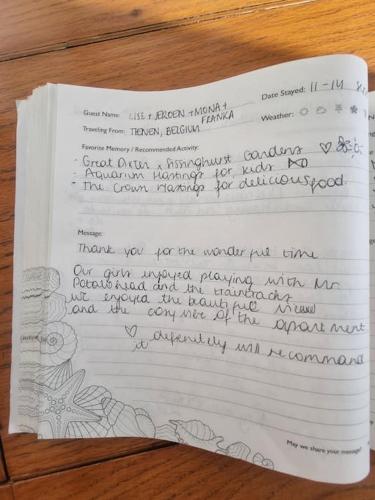 Date Stayed: 11-14
Guest Name: LISE + JEROEN + MONA +
FRANKA
Weather:
Traveling From: TIENEN, BELGIUM
Favorite Memory / Recommended Activity:
- Great Dixter & Sissinghurst Gardens
- Aquarium Hastings for kids
- The Crown Hastings for delicious food.
Message:
Thank you for the wonderful time
Our girls enjoyed playing with Mr.
Potatohead and the traintracks
we enjoyed the beautiful
and the of the apartment
definitely will recommand
it
May we share your message?